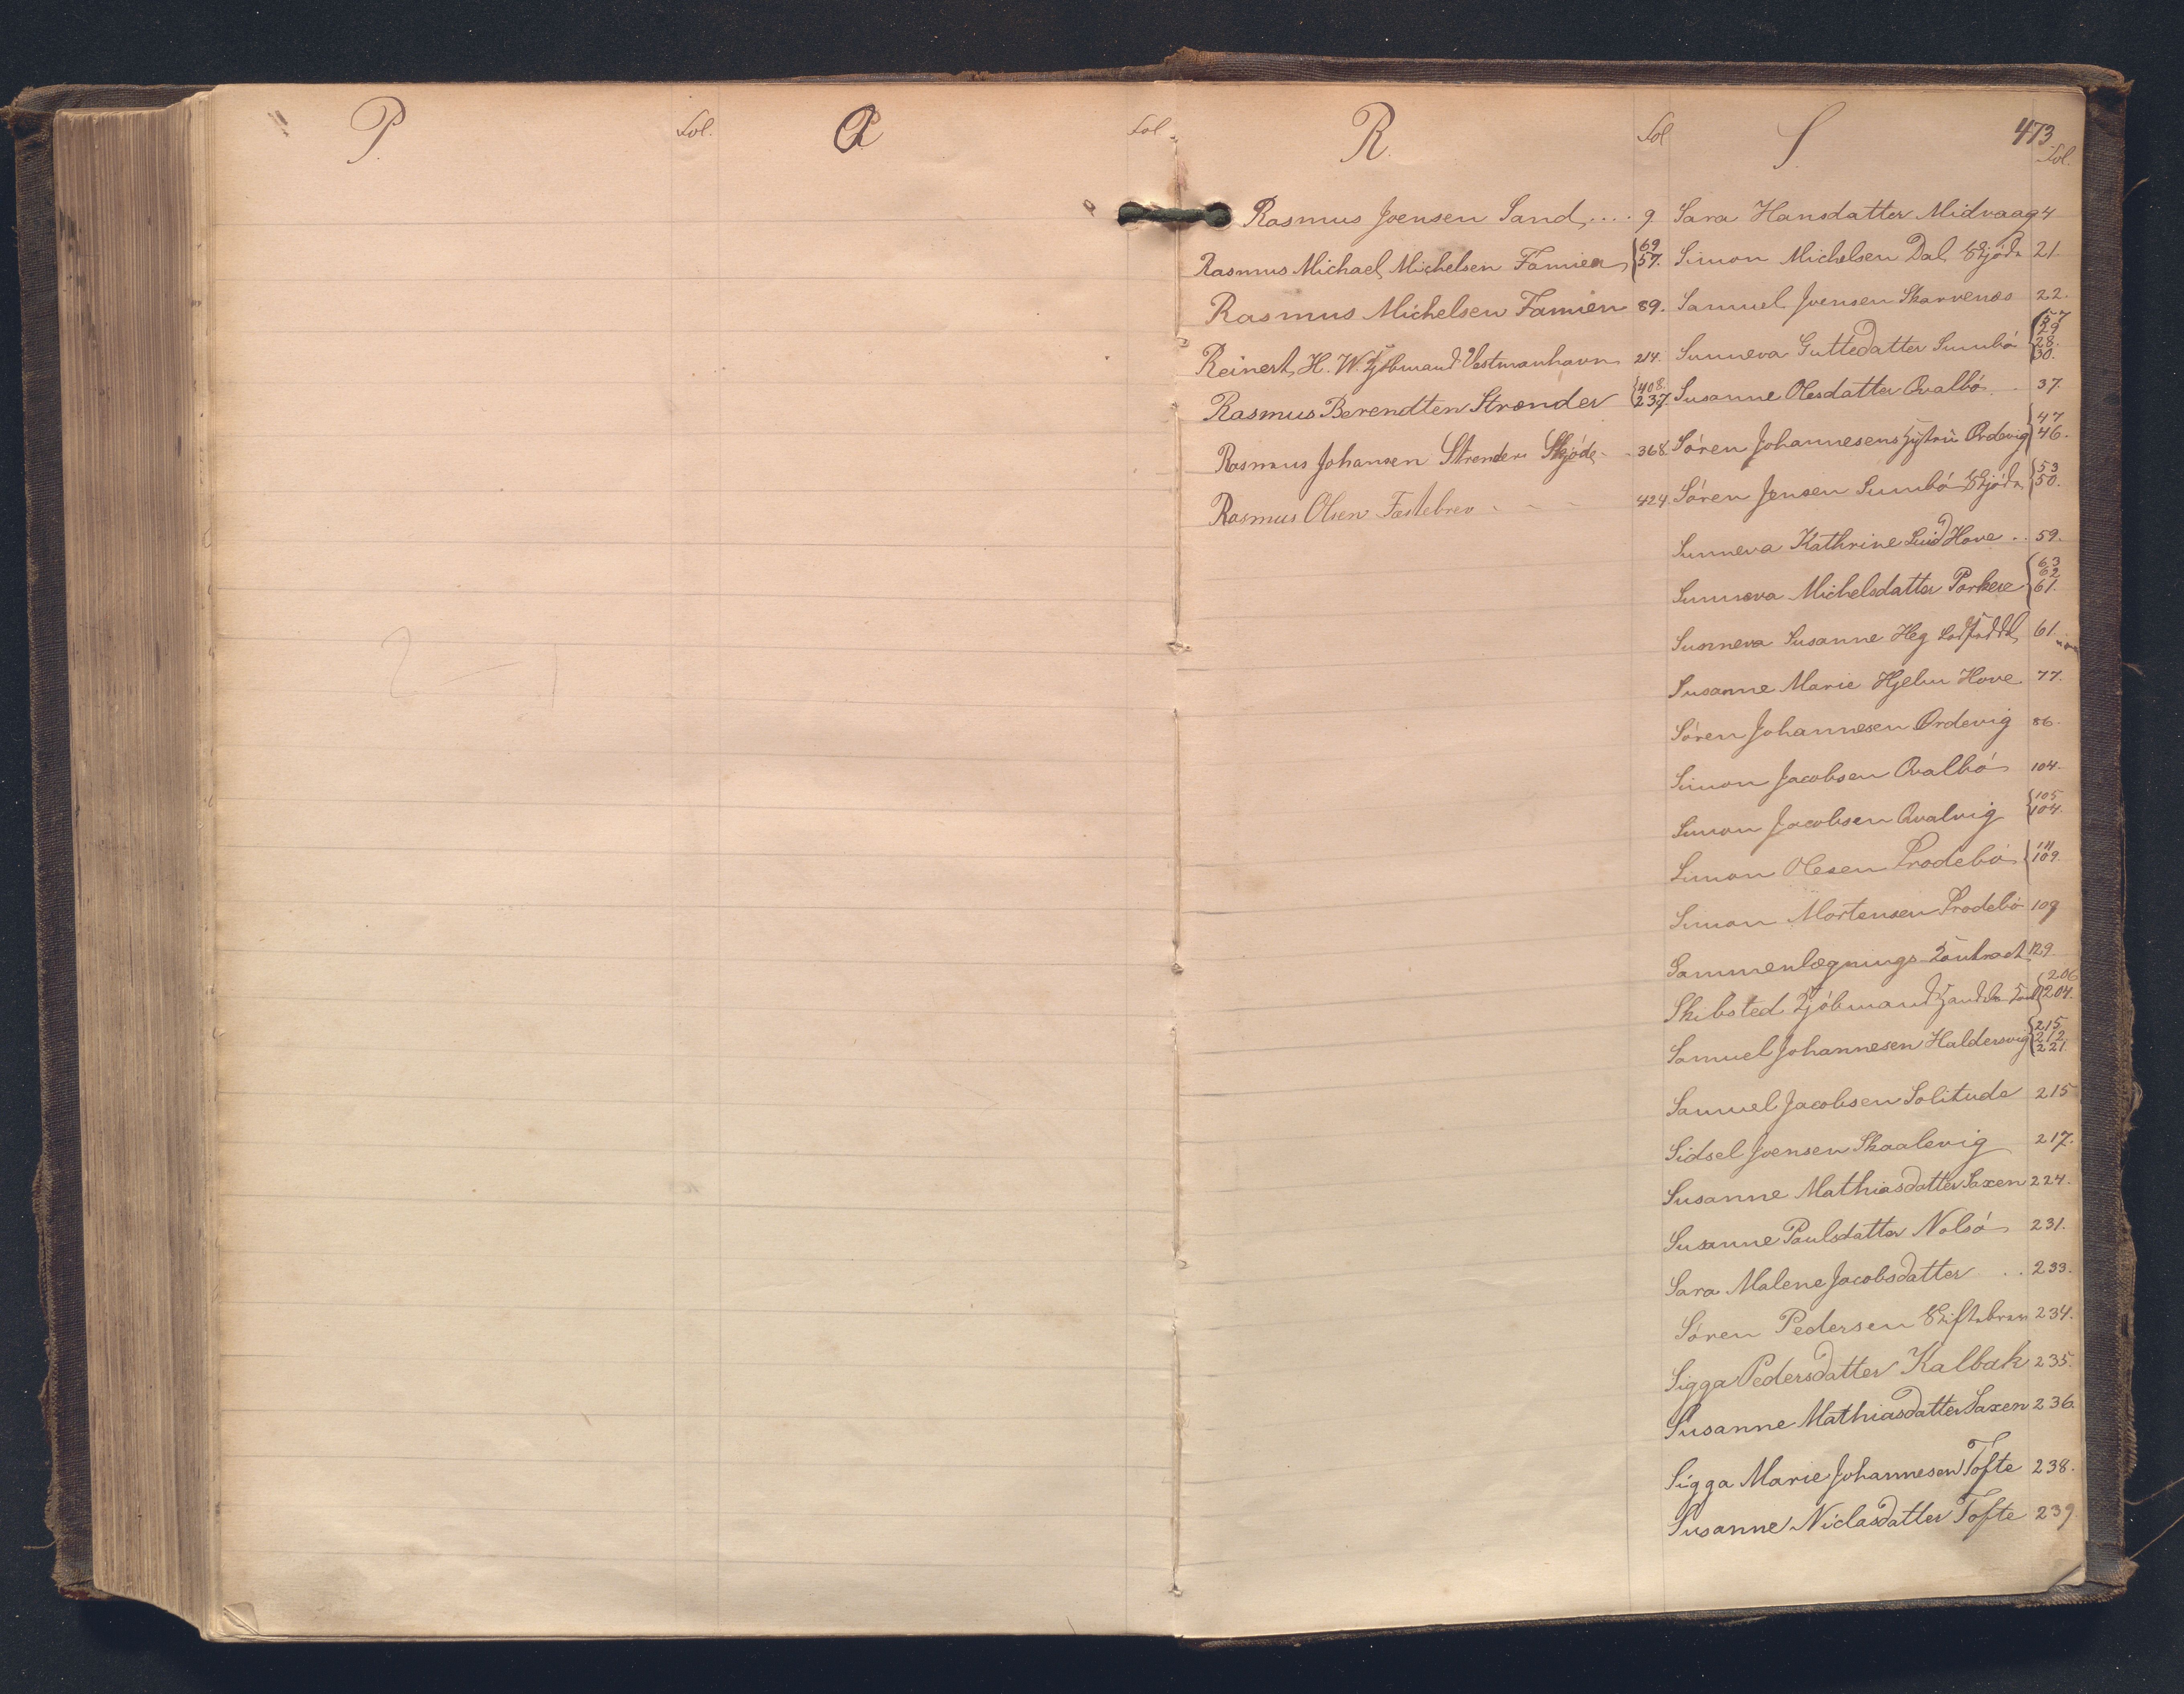 P.
Fol.
Q
Fol
R.
Fol
Rasmus Joensen Sand .... 9.
Rasmus Michael Michelsen Famien {69 57.
Rasmus Michelsen Famien 89.
Reinert, H. W. Kjöbmand Vestmanhavn 214.
Rasmus Berendten Strender {408. 237.
Rasmus Johansen Strender Skjöde - - 368
Rasmus Olsen Fæstebrev - - - 424.
S.
473
Fol.
Sara Hansdatter Midvaag 4
Simon Michelsen Dal Skjöde 21.
Samuel Joensen Skarvenæs 22.
Sunneva Guttedatter Sumbö {57 29 28. 30.
Susanne Olesdatter Qvalbö . 37.
Sören Johannesens Hustru Ordevig {47 46.
Sören Jensen Sumbö Skjöde {53 50.
Sunneva Kathrine Hove .. 59.
Sunneva Michelsdatter Porkere {63 62 61.
Sunneva Susanne Heg 61
Susanne Marie Hjelm Hove 77.
Sören Johannesen Ordevig 86.
Simon Jacobsen Qvalbö 104.
Simon Jacobsen Qvalvig {105 104.
Simon Olesen Frodebö {111 109.
Simon Mortensen Frodebö 109
Sammenlægnings-Contract 129
Skibsted Kjöbmand {206 204.
Samuel Johannesen Haldersvig {215 212 221.
Samuel Jacobsen Solitude 215
Sidsel Joensen Skaalevig 217.
Susanne Mathiasdatter Saxen 224.
Susanne Paulsdatter Nolsö 231.
Sara Malene Jacobsdatter .. 233.
Sören Pedersen Skiftebrev 234.
Sigga Pedersdatter Kalbak 235.
Susanne Mathiasdatter Saxen 236.
Sigga Marie Johannesen Tofte 238.
Susanne Niclasdatter Tofte 239